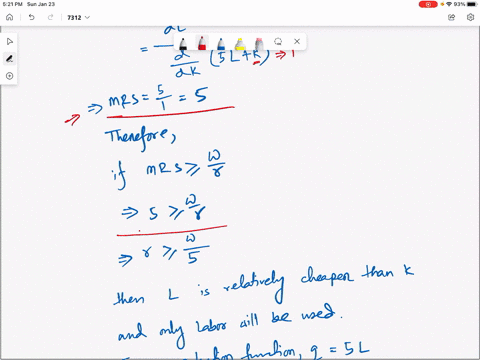 5:21 PM Sun Jan 23
93%
7312
dL
= d/dk (5L+k) ⇒ 1
⇒ MRS = 5/1 = 5
Therefore,
if MRS ≥ w/r
⇒ 5 ≥ w/r
⇒ r ≥ w/5
then L is relatively cheaper than k
and only Labor will be used.
function, q = 5L